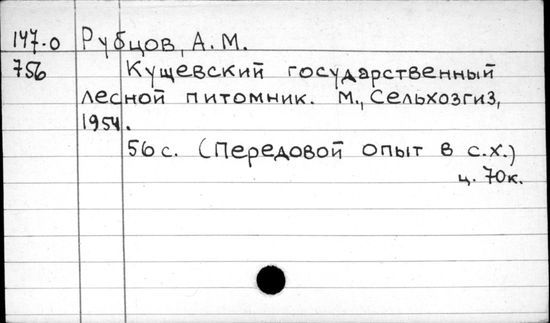 147.0 Рубцов, А.М.
756 Кущевский государственный
лесной питомник. М., Сельхозгиз,
1954.
56 с. (Передовой опыт в с.х.)
ц. 70к.